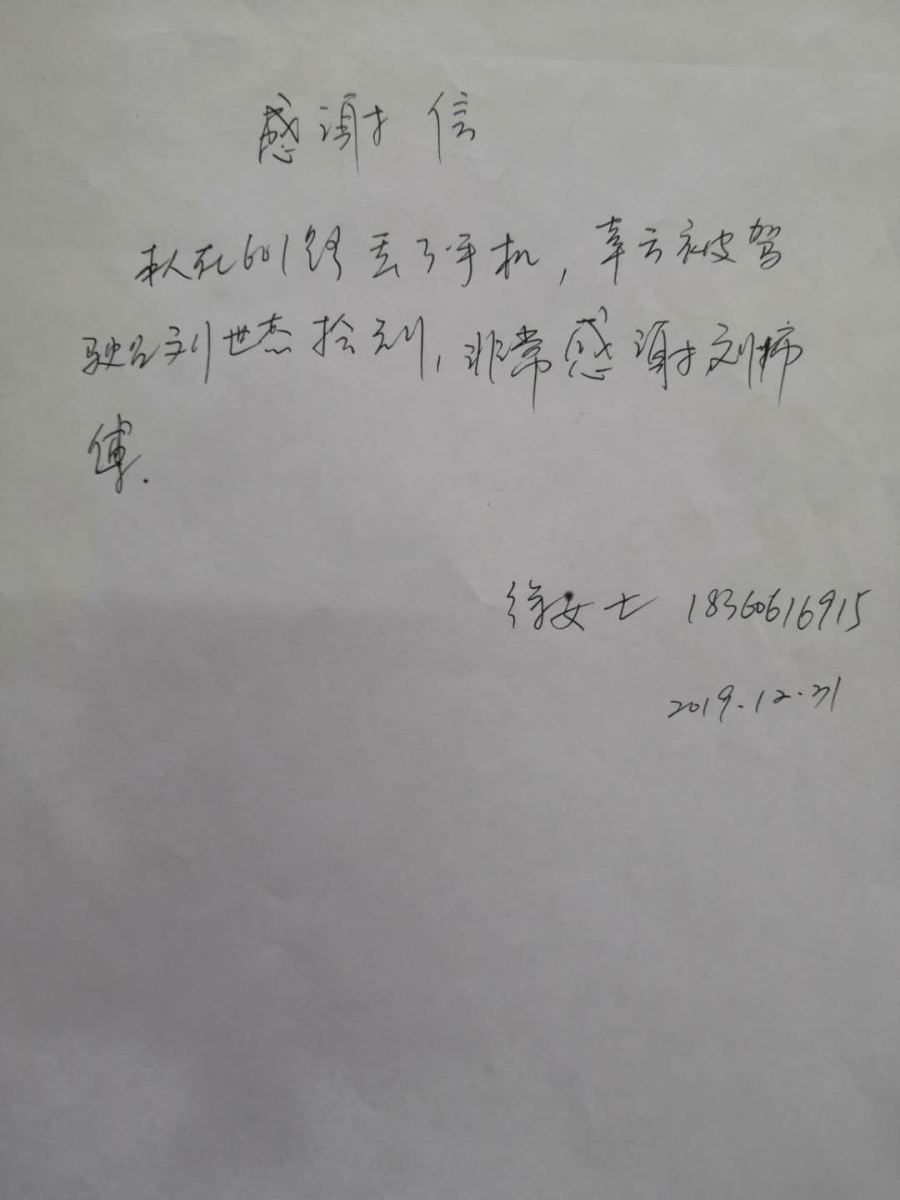 感谢信
本人在601路丢了手机，幸亏被驾
驶员刘世杰捡到，非常感谢刘师
傅.
徐女士 18360616915
2019.12.31